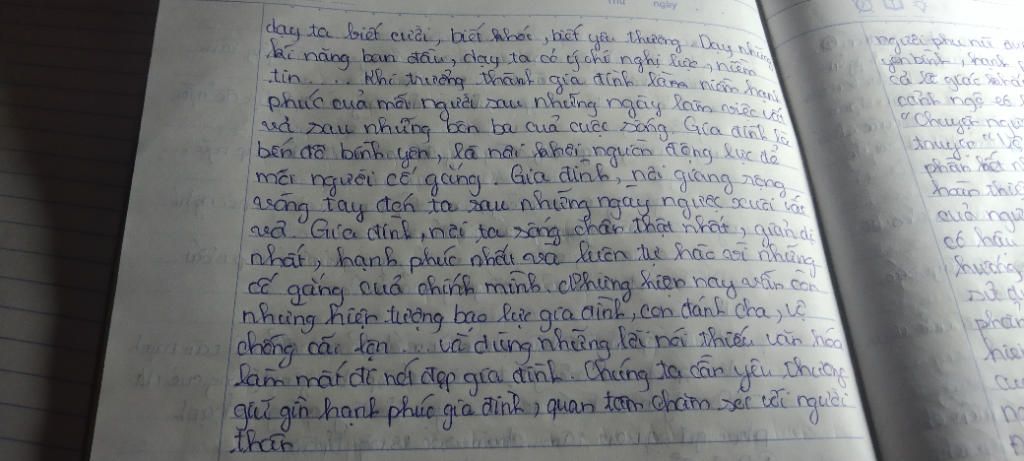 dạy ta biết cười, biết khóc, biết yêu thương. Dạy những
kĩ năng ban đầu, dạy ta có ý chí nghị lực, niềm
tin.... Khi trưởng thành gia đình làm niềm hạnh
phúc của mỗi người sau những ngày làm việc vất
vả sau những bôn ba cuả cuộc sống. Gia đình là
bến đỗ bình yên, là nơi khơi nguồn động lực để
mỗi người cố gắng. Gia đình, nơi giang rộng
vòng tay đón ta sau những ngày ngược xuôi vất
vả. Gia đình, nơi ta sống chân thật nhất, giản dị
nhất, hạnh phúc nhất và luôn tự hào vì những
cố gắng của chính mình. Nhưng hiện nay vẫn còn
những hiện tượng bạo lực gia đình, con đánh cha, vợ
chồng cãi lộn ... và dùng những lời nói thiếu văn hóa
làm mất đi nét đẹp gia đình. Chúng ta cần yêu thương
giữ gìn hạnh phúc gia đình, quan tâm chăm sóc với người
thân
ngày
người phụ nữ
yên bình, hạnh
có lẽ giấc
cảnh ngộ
"Chuyện người
truyện
phần
hoàn
của người
có hậu